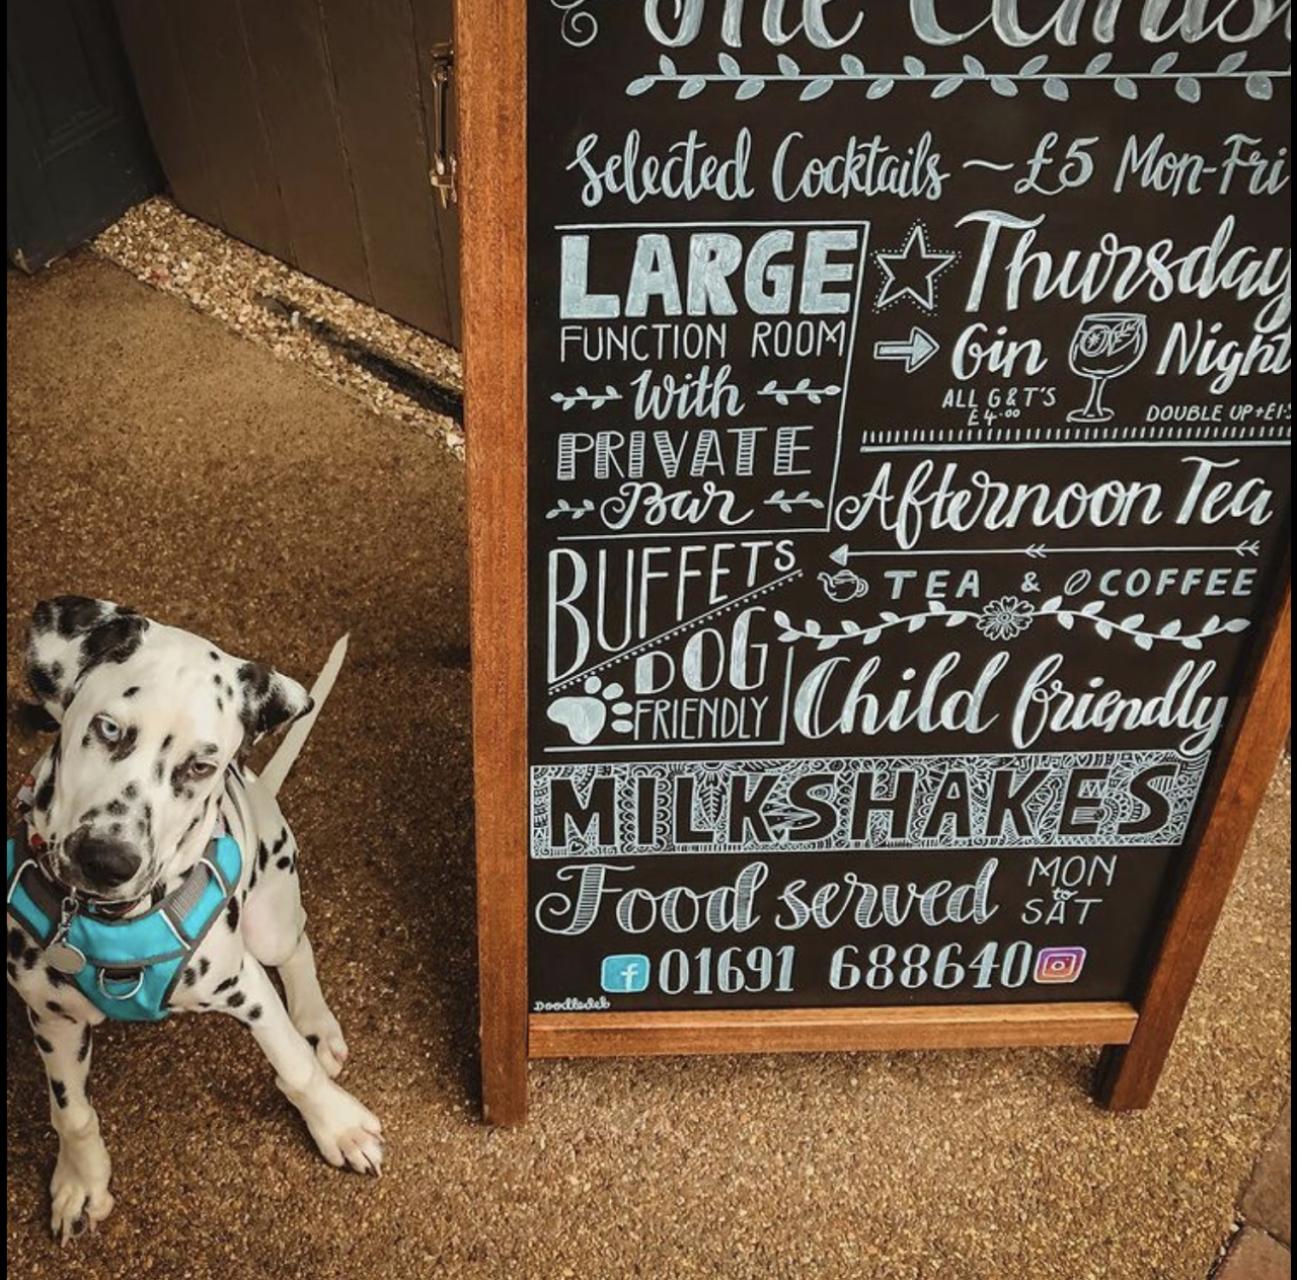 The
Selected Cocktails ~ £5 Mon-Fri
LARGE
FUNCTION ROOM
with
PRIVATE
Bar
Thursday
Gin Night
ALL G&T'S
£4.00
DOUBLE UP+£1.5
Afternoon Tea
TEA & COFFEE
BUFFETS
DOG
FRIENDLY
Child friendly
MILKSHAKES
Food served MON
to
SAT
f 01691 688640
Doodledeb